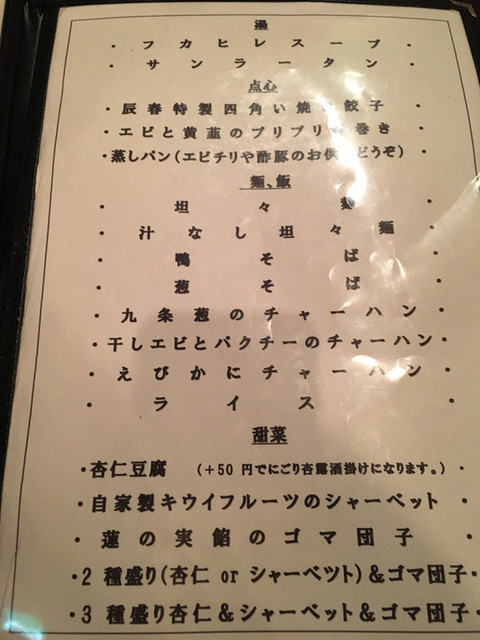 湯
・フカヒレスープ・
・サンラータン・
点心
・辰春特製四角い焼 餃子・
・エビと黄韮のプリプリ 巻き・
・蒸しパン(エビチリや酢豚のお供 どうぞ)・
麺、飯
・坦々麺・
・汁なし坦々麺・
・鴨そば・
・葱そば・
・九条葱のチャーハン・
・干しエビとパクチーのチャーハン・
・えびかにチャーハン・
・ライス・
甜菜
・杏仁豆腐 (+50 円でにごり杏露酒掛けになります。)・
・自家製キウイフルーツのシャーベット・
・蓮の実餡のゴマ団子・
・2 種盛り(杏仁 or シャーベツト)&ゴマ団子・
・3 種盛り杏仁&シャーベット&ゴマ団子・